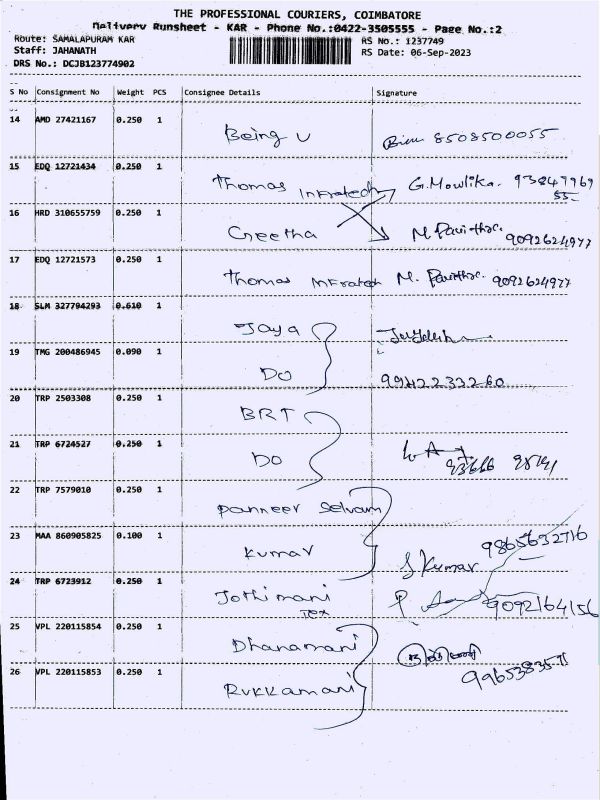 THE PROFESSIONAL COURIERS, COIMBATORE
Delivery Runsheet - KAR - Phone No.:0422-3505555 - Page No.:2
Route: SAMALAPURAM KAR RS No.: 1237749
Staff: JAHANATH RS Date: 06-Sep-2023
DRS No.: DCJB123774902
S No Consignment No Weight PCS Consignee Details Signature
14 AMD 27421167 0.250 1
Being U 8508500055
15 EDQ 12721434 0.250 1
Thomas Infratech G. Mowlika.
16 HRD 310655759 0.250 1
Geetha M. Pavithra. 9092624977
17 EDQ 12721573 0.250 1
Thomas Infratech M. Pavithra. 9092624977
18 SLM 327794293 0.610 1
Jaya
19 TMG 200486945 0.090 1
DO 9942233260
20 TRP 2503308 0.250 1
BRT
21 TRP 6724527 0.250 1
DO
22 TRP 7579010 0.250 1
Panneer Selvam
23 MAA 860905825 0.100 1
Kumar S Kumar 9865632716
24 TRP 6723912 0.250 1
Jothimani
Tex 9092164156
25 VPL 220115854 0.250 1
Dhanamani
26 VPL 220115853 0.250 1
Rukkamani